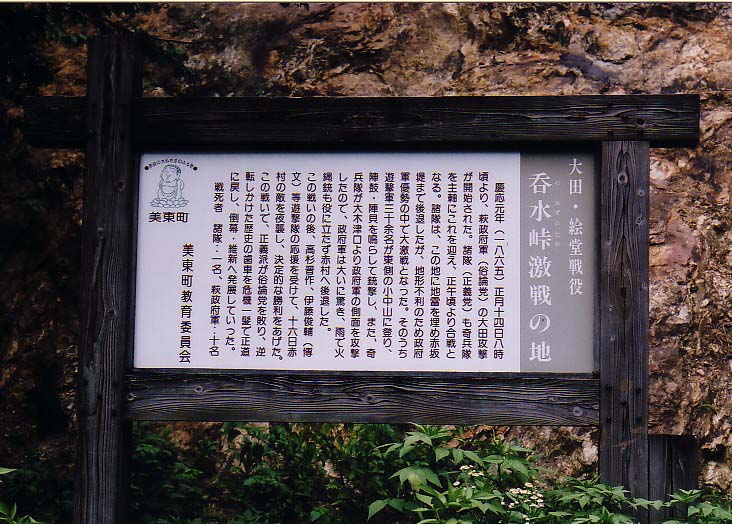 大田・絵堂戦役
呑水峠激戦の地
のみずのたお
慶応元年（一八六五）正月十四日八時
頃より、萩政府軍（俗論党）の大田攻撃
が開始された。諸隊（正義党）も奇兵隊
を主軸にこれを迎え、正午頃より合戦と
なる。諸隊は、この地に地雷を埋め赤坂
堤まで後退したが、地形不利のため政府
軍優勢の中で大激戦となった。そのうち
遊撃軍三十余名が東側の小中山に登り、
陣鼓・陣貝を鳴らして銃撃し、また、奇
兵隊が大木津口より政府軍の側面を攻撃
したので、政府軍は大いに驚き、雨で火
縄銃も役に立たず赤村へ後退した。
この戦いの後、高杉晋作、伊藤俊輔（博
文）等遊撃隊の応援を受けて、十六日赤
村の敵を夜襲し、決定的な勝利をあげた。
この戦いで、正義派が俗論党を敗り、逆
転しかけた歴史の歯車を危機一髪で正道
に戻し、倒幕・維新へ発展していった。
戦死者　諸隊：一名、萩政府軍：十名
美東町教育委員会
美東町